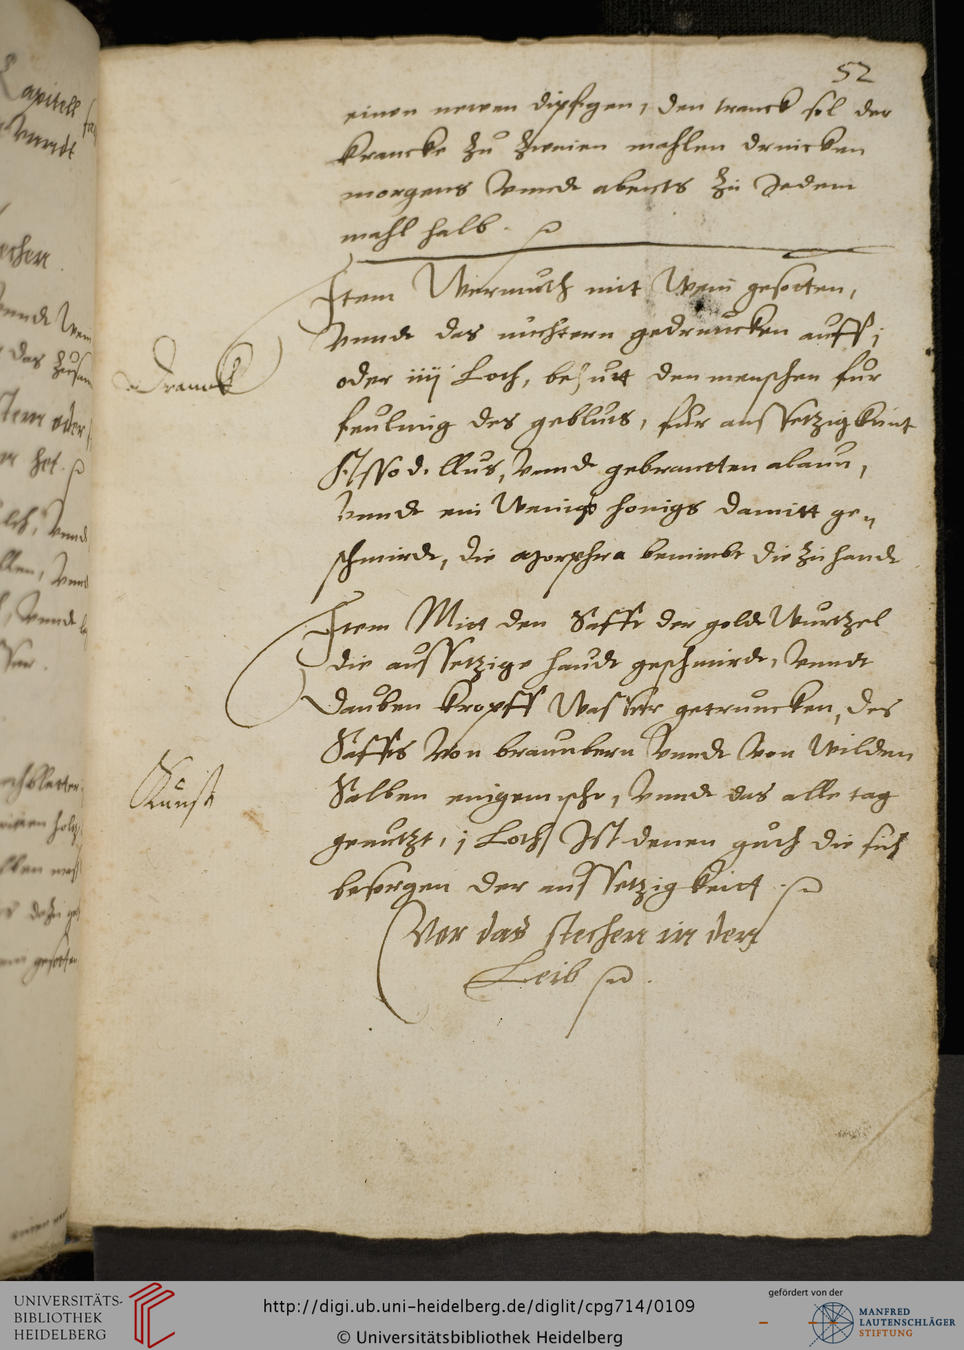 52
einen newen dipfgen, den tranck sol der
krancke zu zweien mahlen drincken
morgens vnnd abents zu Jedem
mahl halb.
Item Wermuth mit Wein gesotten,
vnnd das nuchtern gedruncken auff j
Dranck
oder iiij Loth, behutt den menschen fur
feulnug des gebluts, fur aussetzigkeit
Assodillus, vnnd gebrantten alaun,
vnnd ein Wenig honigs damitt ge„
schmirdt, die morphea benimbt die zu handt
Item Mitt den Safft der goldt Wurtzel
die aussetzige haudt geschmirdt, vnndt
dauben kropff Wasser getruncken, des
Saffts von braunbern vnndt von Wilden
Kunst
Salben eingemischt, vnndt das alle tag
genutzt, j Loth, Ist denen guth die sich
besorgen der aussetzigkeitt.
Vor das stechen in den
Leib
Capitell
vnndt
vnndt
das
UNIVERSITÄTS-
BIBLIOTHEK
HEIDELBERG
http://digi.ub.uni-heidelberg.de/diglit/cpg714/0109
© Universitätsbibliothek Heidelberg
gefördert von der
MANFRED
LAUTENSCHLÄGER
STIFTUNG